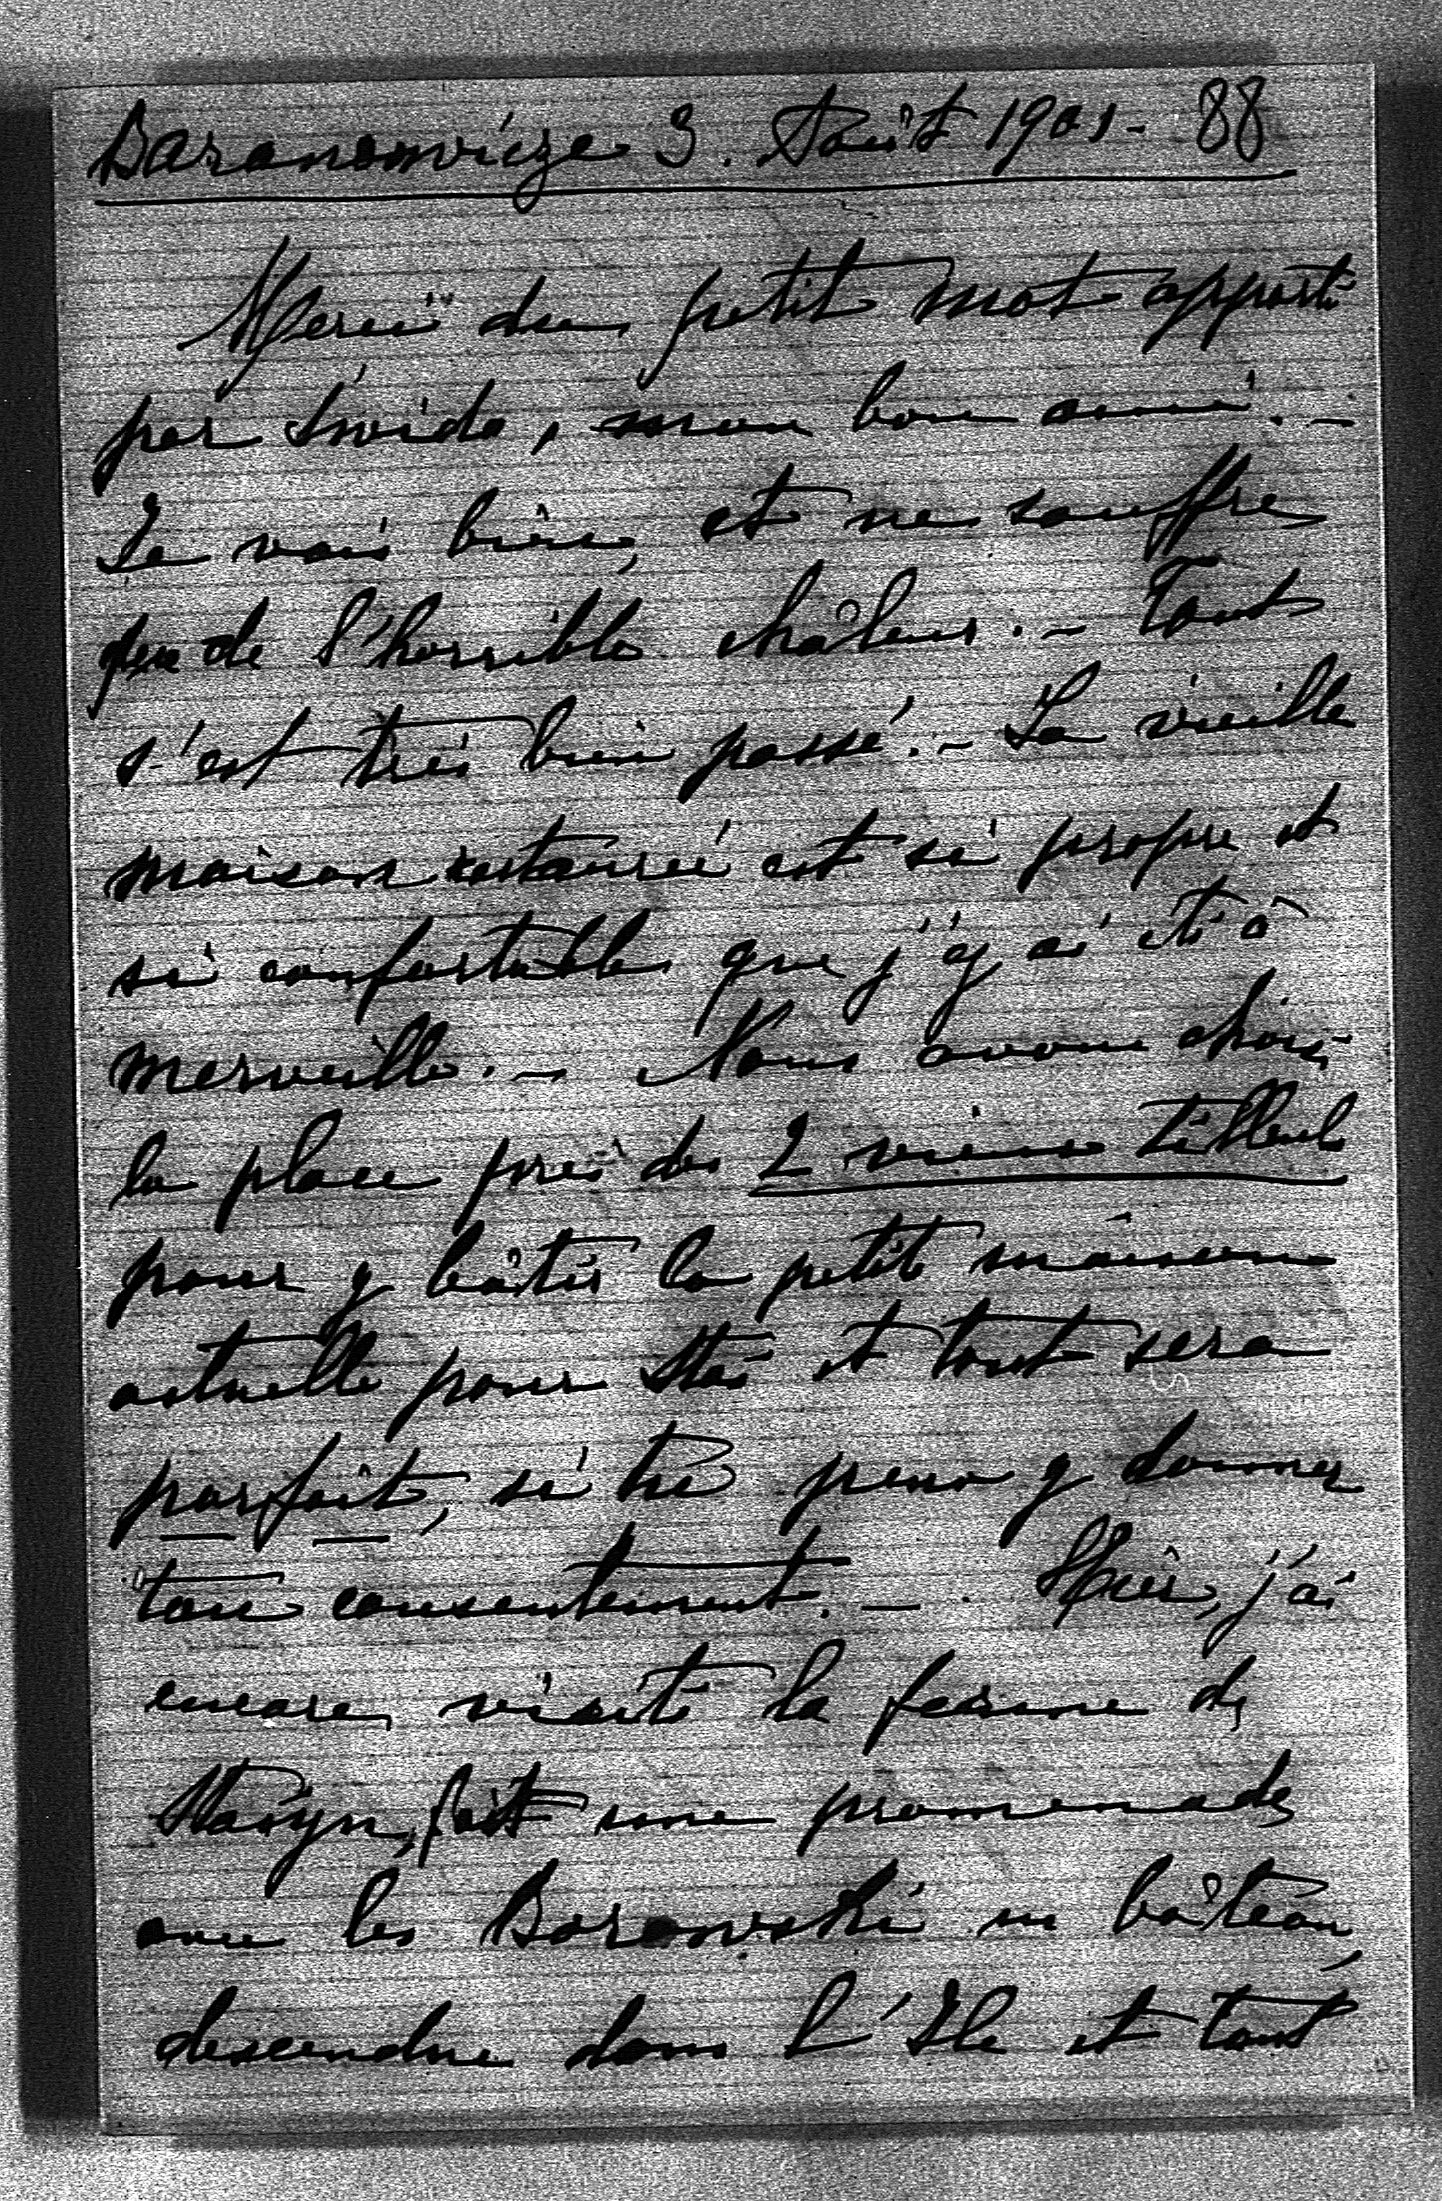 Baranowicze 3. Août 1901 - 88
Merci du petit mot apporté
par Swida, mon bon ami. -
Je vais bien, et ne souffre
peu de l'horrible châleur. - Tout
s'est très bien passé. - La vieille
maison restaurée est si propre et
si confortable que j'y ai été à
merveille. - Nous avons choisi
la place près des 2 vieux tilleuls
pour y bâtir la petite maison
actuelle pour Staś et tout sera
parfait, si tu peux y donner
ton consentement. - Hier, j'ai
encore visité la ferme de
fait une promenade
avec les Borowski en bâteau,
descendue dans l'Ile et tout